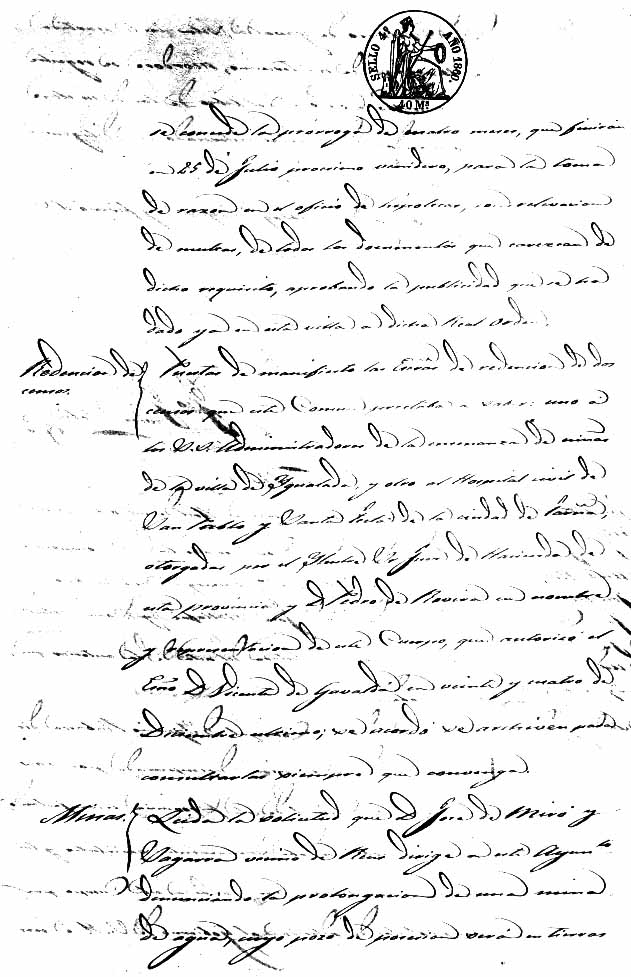 SELLO 4º AÑO 1860.
40 Ms
se concede la prorroga de cuatro meses, que finirán
en 25 de Julio procsimo venidero, para la toma
de razon en el oficio de hipotecas, con relevacion
de multas, de todos los documentos que carezcan de
dicho requisito, aprobando la publicidad que se ha
dado ya en esta villa a dicha Real orden.
Redencion de
censos.
Puestas de manifiesto las Escras de redencion de dos
censos que este Comun prestaba a saber: uno a
los S.S. Administradores de la enseñanza de niñas
de la villa de Igualada, y otro al Hospital civil de
San Pablo y Santa Tecla de la ciudad de Tarrna,
otorgadas por el Iltre Sr Juez de Hacienda de
esta provincia y D. Pedro de Rovira en nombre
y representacion de este Cuerpo, que autorizó el
Esno D. Vicente de Gavaldá en veinte y cuatro de
Diciembre ultimo; se acordó se archiven para
consultarlas siempre que convenga.
Minas.
Leida la solicitud que D. José de Miró y
Sagarra vecino de Reus dirige a este Ayunto
denunciando la prolongacion de una mina
de agua, cuyo pozo de posesion será en tierras